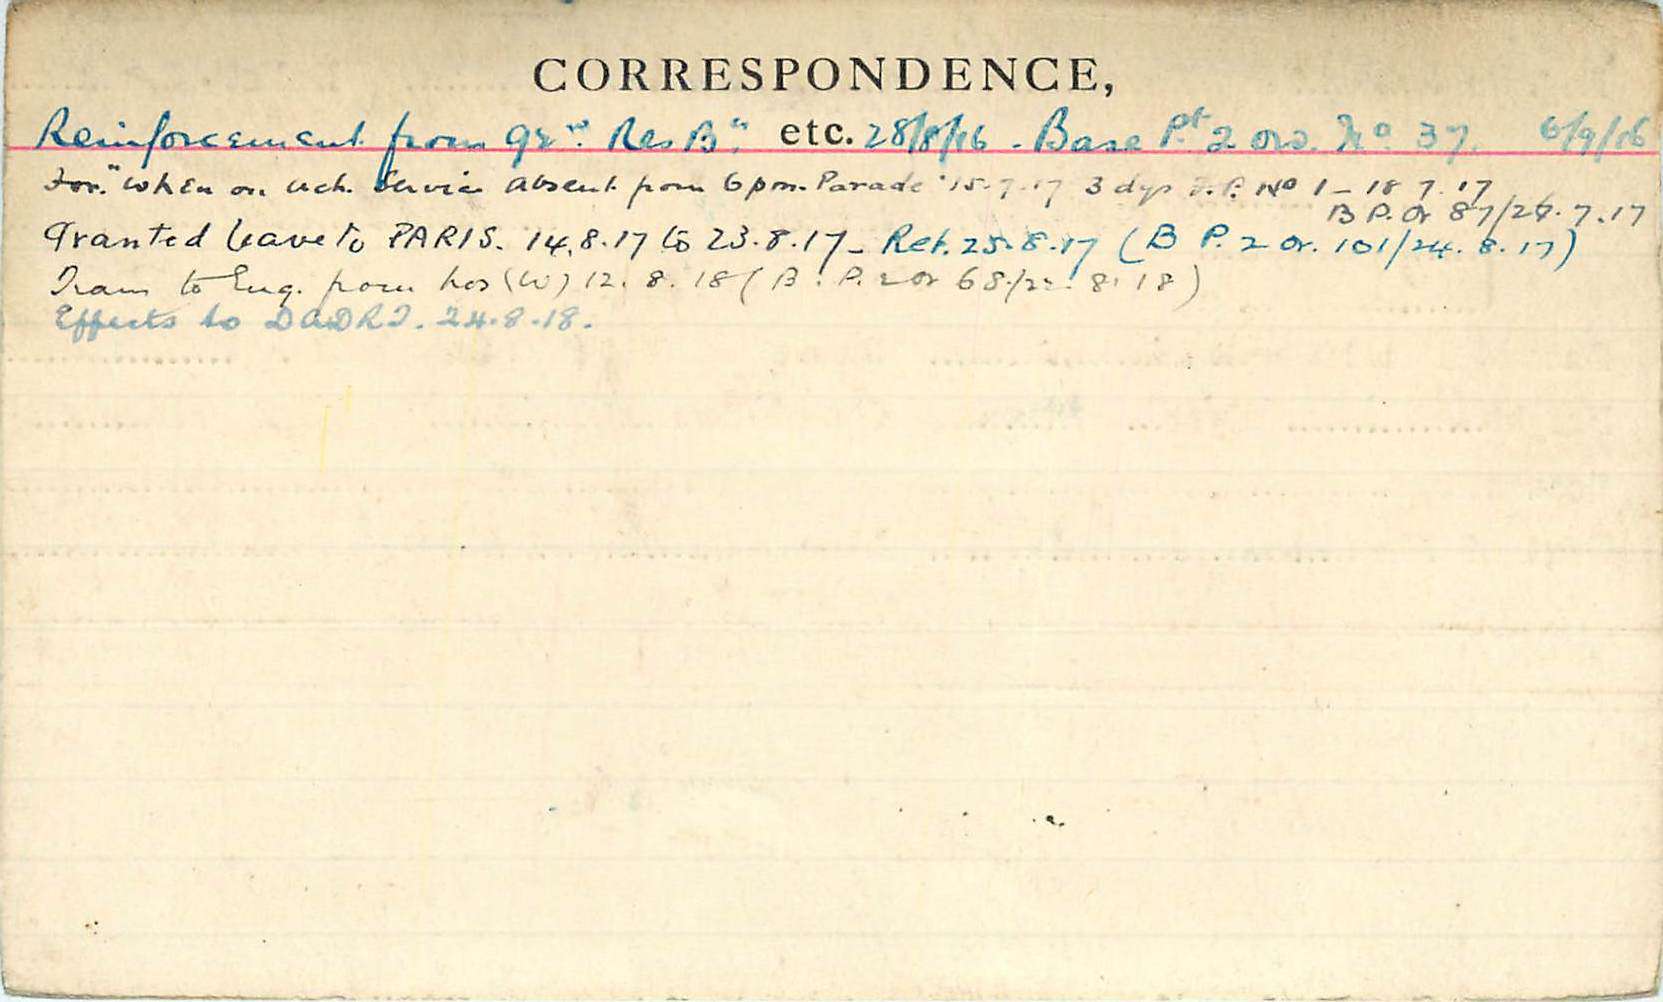 CORRESPONDENCE,
Reinforcement from 92nd Res Bn etc. 28/8/16 - Base Pt 2 Ord. No 37. 6/9/16
For "When on act. Service absent from 6 pm. Parade" 15.7.17 3 dys F.P. No 1 - 18.7.17
B P. Or 87/26.7.17
Granted leave to PARIS. 14.8.17 to 23.8.17 - Ret. 25.8.17 (B P. 2 Or. 101/24.8.17)
Trans to Eng. from hos (W) 12.8.18 (B. P. 2 Or 68/ 8.18)
Effects to DADRT. 24.8.18.